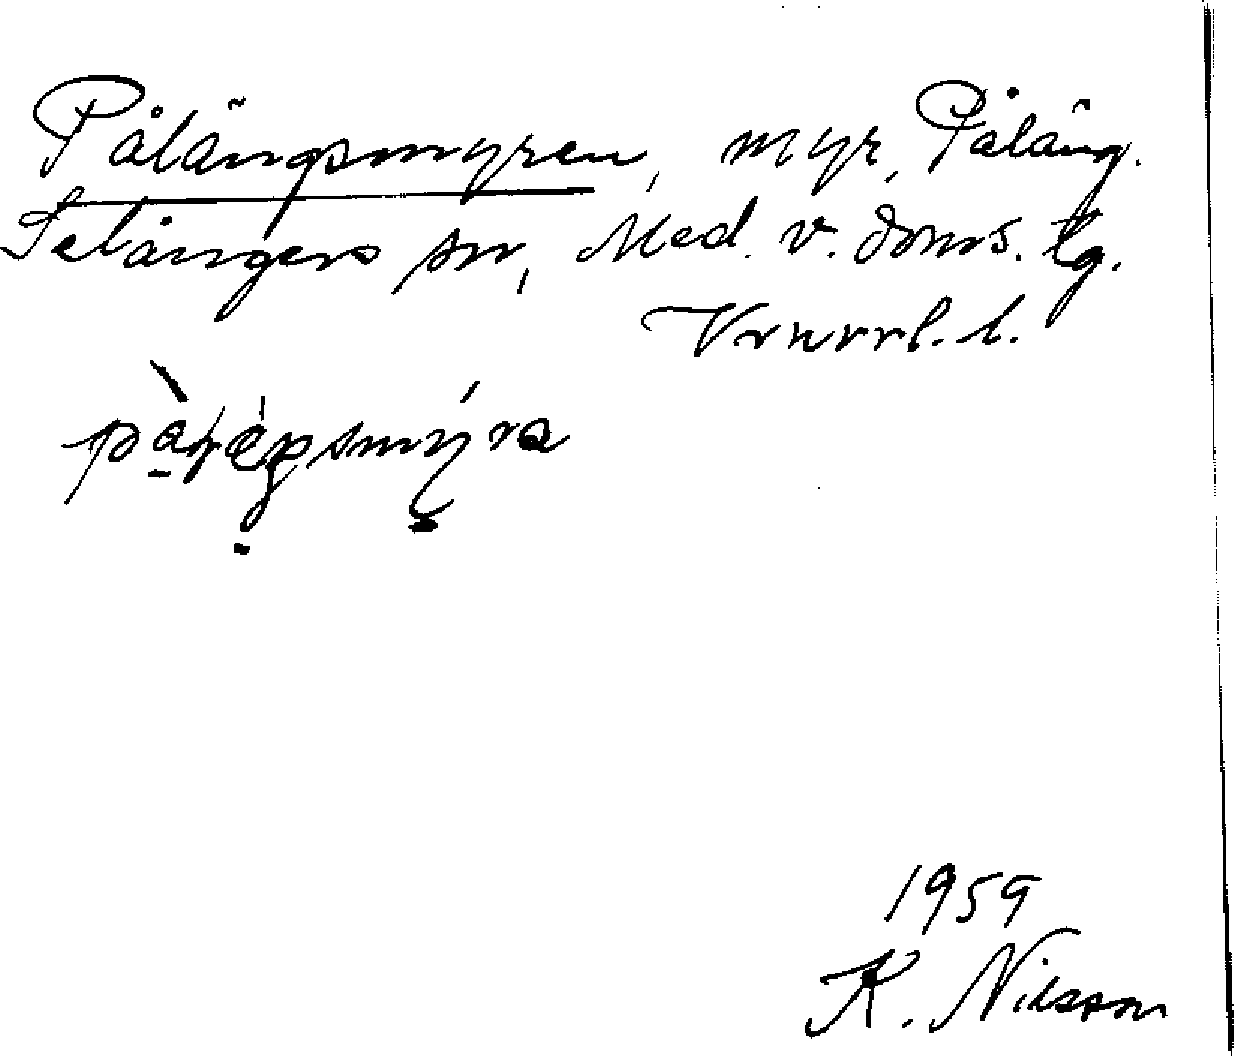 Pålängsmyren, myr, Påläng.
Selångers sn, Med. v. doms. tg.
pàlẹŋsmýra
1959
K. Nilsson